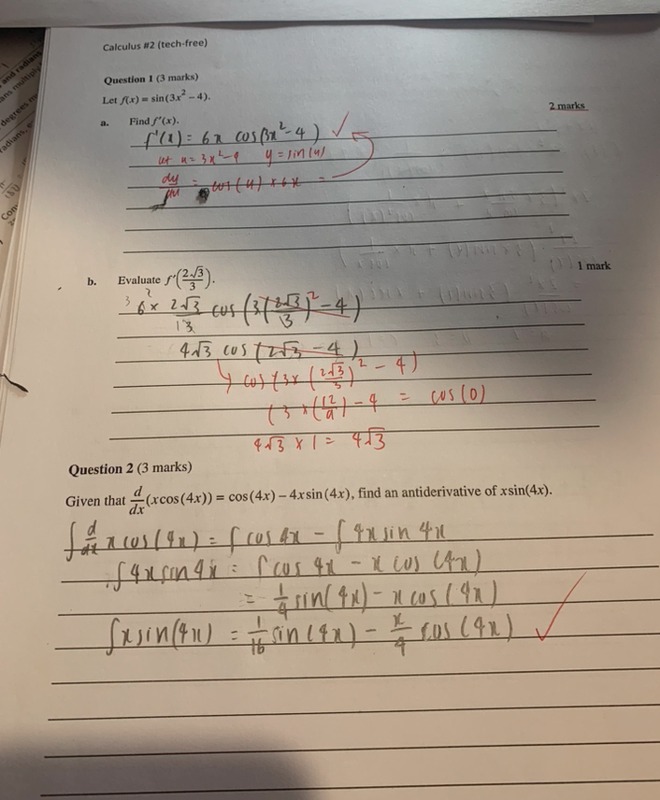 Calculus #2 (tech-free)
Question 1 (3 marks)
Let f(x) = sin(3x² − 4).
2 marks
a. Find f′(x).
f'(x) = 6x cos(3x²−4) ✓
let u = 3x²−4 y = sin(u)
dy = cos(u) × 6x =
b. Evaluate f′(2√3/3).
1 mark
6 × 2√3/3 cos(3(2√3/3)² − 4)
4√3 cos(2√3 − 4)
↳ cos(3 × (2√3/3)² − 4)
(3 × (12/9) − 4 = cos(0)
4√3 × 1 = 4√3
Question 2 (3 marks)
Given that d/dx (x cos(4x)) = cos(4x) − 4x sin(4x), find an antiderivative of x sin(4x).
∫ d/dx x cos(4x) = ∫ cos 4x − ∫ 4x sin 4x
∫ 4x sin 4x = ∫ cos 4x − x cos (4x)
= 1/4 sin(4x) − x cos(4x)
∫ x sin(4x) = 1/16 sin(4x) − x/4 cos(4x) ✓